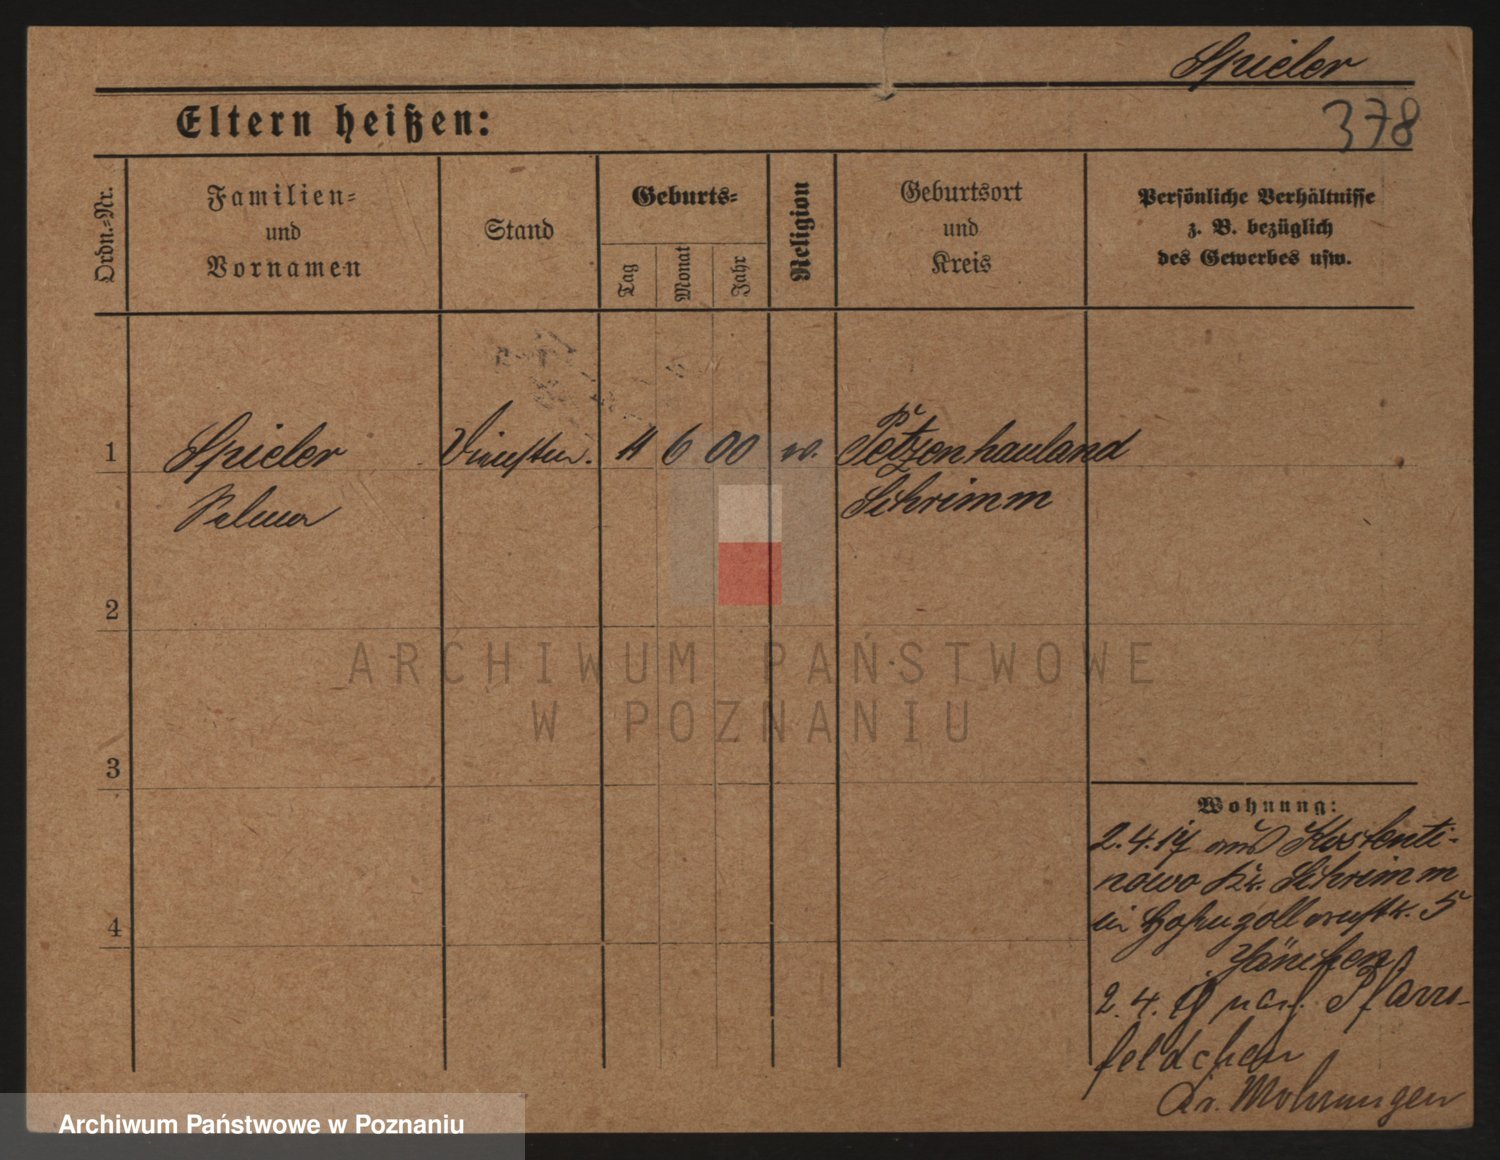 Spieler
378
Eltern heißen:
Ordn.-Nr.
Familien-
und
Vornamen
Stand
Geburts-
Tag
Monat
Jahr
Religion
Geburtsort
und
Kreis
Persönliche Verhältnisse
z. B. bezüglich
des Gewerbes usw.
1
Spieler
Selma
6 00
Petzenhauland
Schrimm
2
ARCHIWUM PAŃSTWOWE
W POZNANIU
3
4
Wohnung:
2.4.17 aus Kostenti-
nowo Kr. Schrimm
in Hohenzollernstr. 5
2.4. nach Pfarrs-
feldchen
Kr. Mohrungen
Archiwum Państwowe w Poznaniu